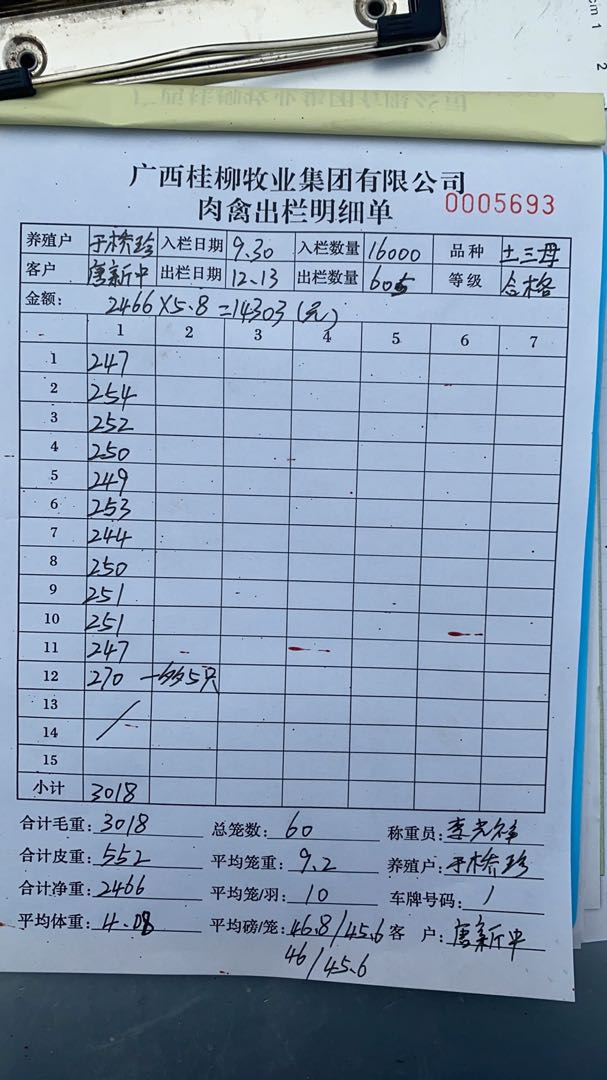 cm 1 2
广西桂柳牧业集团有限公司
肉禽出栏明细单 0005693
养殖户 于桥珍 入栏日期 9.30 入栏数量 16000 品种 土三母
客户 唐新中 出栏日期 12.13 出栏数量 605 等级 合格
金额: 2466×5.8=14303(元)
1 2 3 4 5 6 7
1 247
2 254
3 252
4 250
5 249
6 253
7 244
8 250
9 251
10 251
11 247
12 270 5只
13
14
15
小计 3018
合计毛重: 3018 总笼数: 60 称重员:
合计皮重: 552 平均笼重: 9.2 养殖户: 于桥珍
合计净重: 2466 平均笼/羽: 10 车牌号码: /
平均体重: 4.08 平均磅/笼: 46.8/45.6 客 户: 唐新中
46/45.6